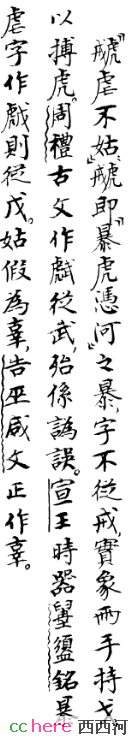 「虐不姑」,即「暴虎憑河」之暴,字不從戒,實象兩手持戈
以搏虎。周禮古文作虣從武,殆係譌誤。宣王時器盨銘暴
虐字作則從戊。姑假為辜,告巫咸文正作辜。
cchere 西西河